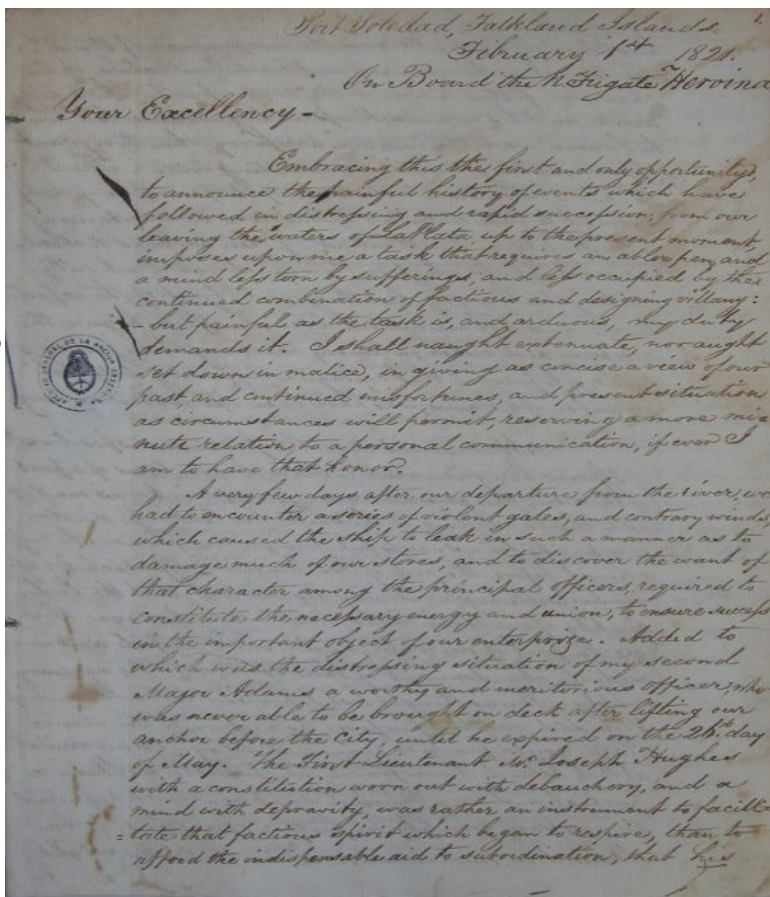 1.
Port Soledad, Falkland Islands.
February 1st 1821.
On Board the N. Frigate Heroina
Your Excellency -
Embracing this the first and only opportunity,
to announce the painful history of events which have
followed in distressing and rapid succession, from our
leaving the waters of LaPlata up to the present moment,
imposes upon me a task that requires an abler pen, and
a mind less torn by sufferings, and less occupied by the
continued combination of factious and designing villany:
- but painful as the task is, and arduous, my duty
demands it. I shall naught extenuate, nor aught
set down in malice, in giving as concise a view of our
past, and continued misfortunes, and present situation
as circumstances will permit, reserving a more mi=
nute relation to a personal communication, if ever I
am to have that honor.
A very few days after our departure from the river, we
had to encounter a series of violent gales, and contrary winds,
which caused the ship to leak in such a manner as to
damage much of our stores, and to discover the want of
that character among the principal officers, required to
constitute the necessary energy and union, to ensure success
in the important object of our enterprize. Added to
which was the distressing situation of my second
Major Adams a worthy and meritorious officer, who
was never able to be brought on deck after lifting our
anchor before the City, until he expired on the 26th day
of May. The First Lieutenant Mr. Joseph Hughes
with a constitution worn out with debauchery, and a
mind with depravity, was rather an instrument to facili=
=tate that factious spirit which began to respire, than to
afford the indispensable aid to subordination, that his